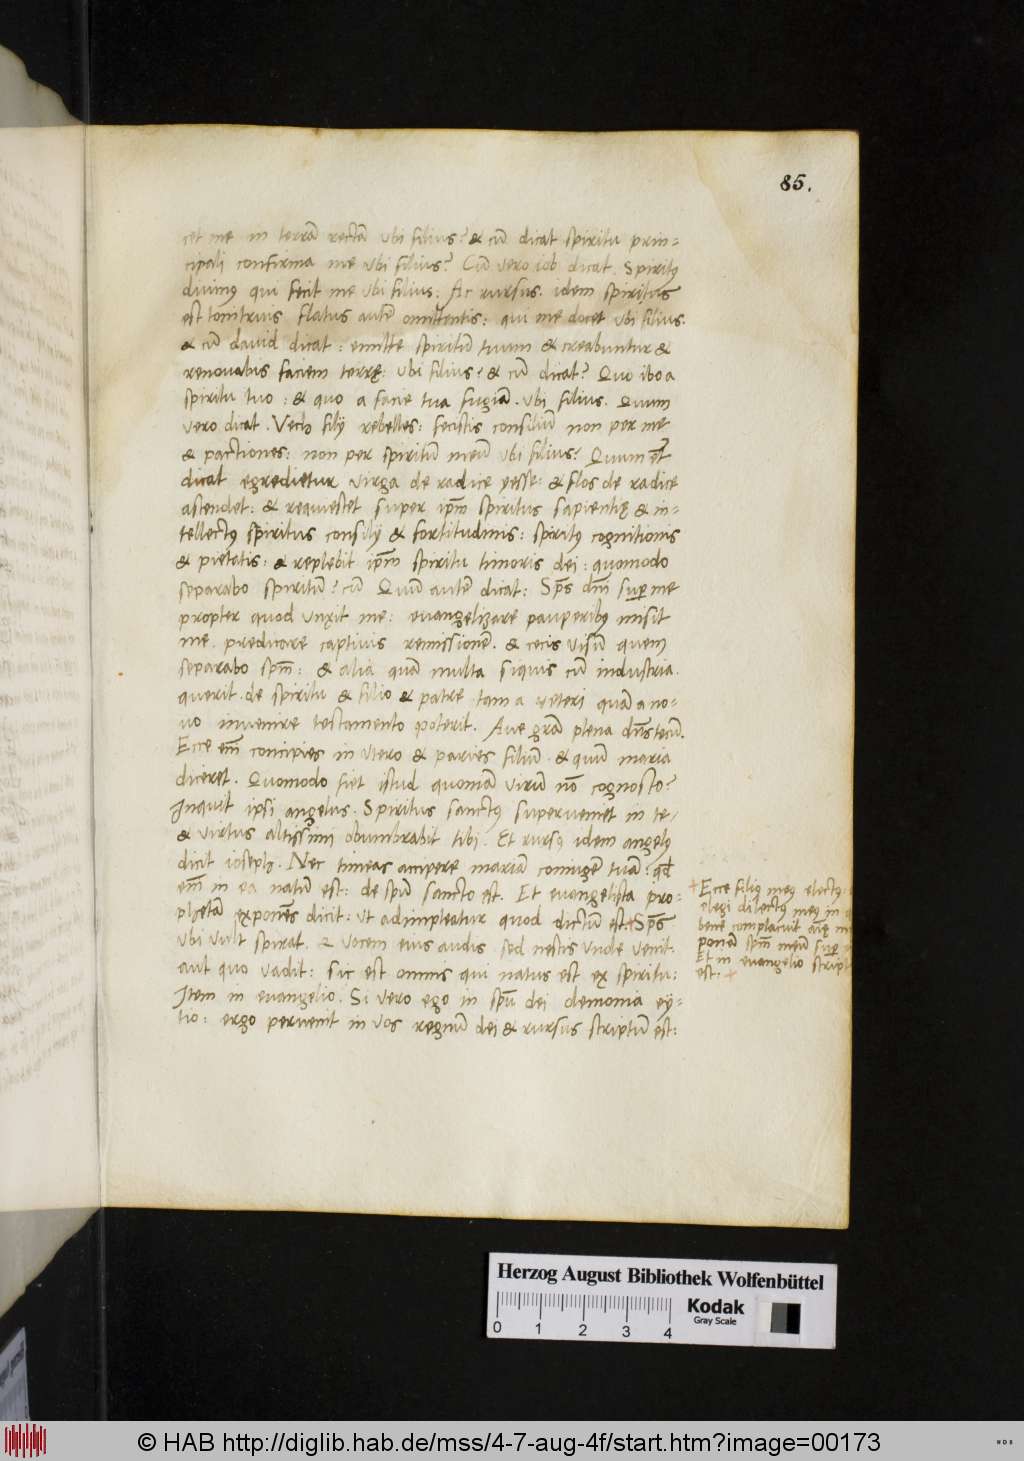 85.
cet me in terrā rectā ubi filius? & cū dicat spiritu prin=
cipali confirma me ubi filius? Cū vero iob dicat. Spiritꝯ
divinꝯ qui fecit me ubi filius: Ac rursus. idem spiritus
est tonitruis flatus autē omittentis: qui me docet ubi filius.
& cū david dicat: emitte spiritū tuum & creabuntur &
renovabis faciem terrę: ubi filius? & cū dicat? Quo ibo a
spiritu tuo: & quo a facie tua fugiā. ubi filius. Quum
vero dicat. Veh filij rebelles: fecistis consiliū non per me
& pactiones: non per spiritū meū ubi filius? Quum et̄
dicat egredietur virga de radice yesse: & flos de radice
ascendet: & requiescet super ip̄m spiritus sapientię & in=
tellectꝯ spiritus consilij & fortitudinis: spiritꝯ cognitionis
& pietatis: & replebit ip̄m spiritu timoris dei: quomodo
separabo spiritū? cū Quū autē dicat: Sp̄s dn̄i super me
propter quod unxit me: euangelizare pauperibꝯ misit
me. predicare captiuis remissionē. & cecis visū quem
separabo sp̄m: & alia quā multa siquis cū industria.
querit. de spiritu & filio & patre tam a veteri quā a no=
uo inuenire testamento poterit. Ave gr̄a plena dn̄s tecū.
Ecce em̄ concipies in utero & paries filiū. & quū maria
diceret. Quomodo fiet istud quoniā virū nō cognosco?
Inquit ipsi angelus. Spiritus sanctꝯ superveniet in te/
& virtus altissimi obumbrabit tibi. Et rursꝯ idem angelꝯ
dicit ioseph. Nec timeas accipere mariā coniugē tuā: qđ
em̄ in ea natū est: de spū sancto est. Et euangelista pro=
phetam exponēs dicit: ut adimpleatur quod dictū est.+ Sp̄s
ubi vult spirat. & vocem eius audis sed nescis unde venit.
aut quo vadit: sic est omnis qui natus est ex spiritu:
Item in euangelio. Si vero ego in spū dei demonia eij=
cio: ergo pervenit in vos regnū dei & rursus scriptū est:
+ Ecce filiꝯ meꝯ electꝯ:
elegi dilectꝯ meꝯ in
bene complacuit
ponā sp̄m meū super
Et in euangelio script
est. +
Herzog August Bibliothek Wolfenbüttel
0 1 2 3 4
Kodak
Gray Scale
© HAB http://diglib.hab.de/mss/4-7-aug-4f/start.htm?image=00173